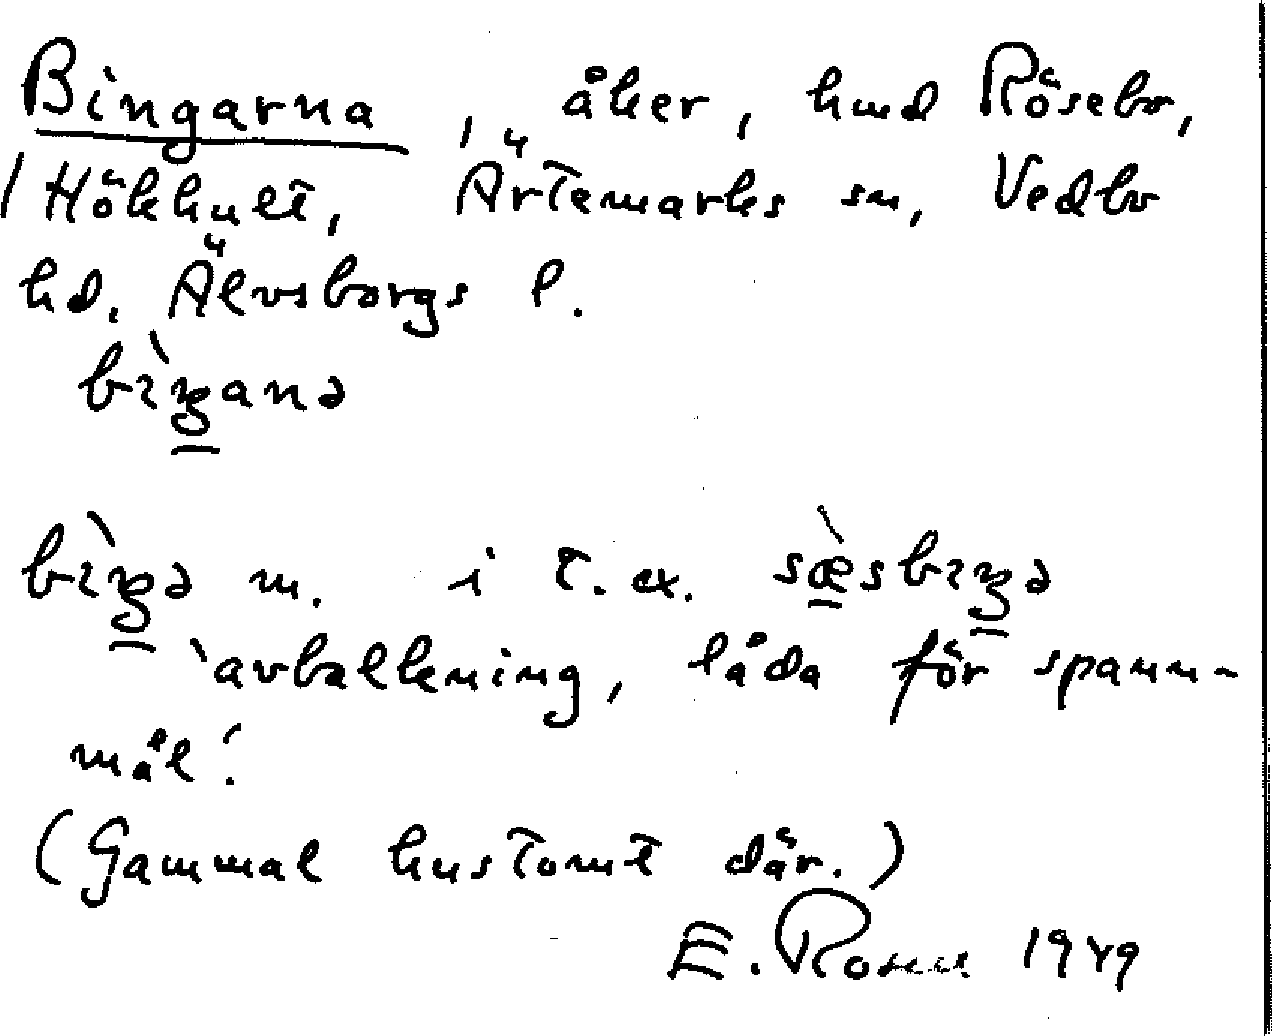 Bingarna, åker, hmd Rösebo,
/ Hökhult, Ärtemarks sn, Vedbo
hd. Älvsborgs l.
bìŋanə
bìŋə m. i t. ex. sæ̀sbiŋə
'avbalkning, låda för spann-
mål'.
(Gammal hustomt där.)
E. Rosen 1949